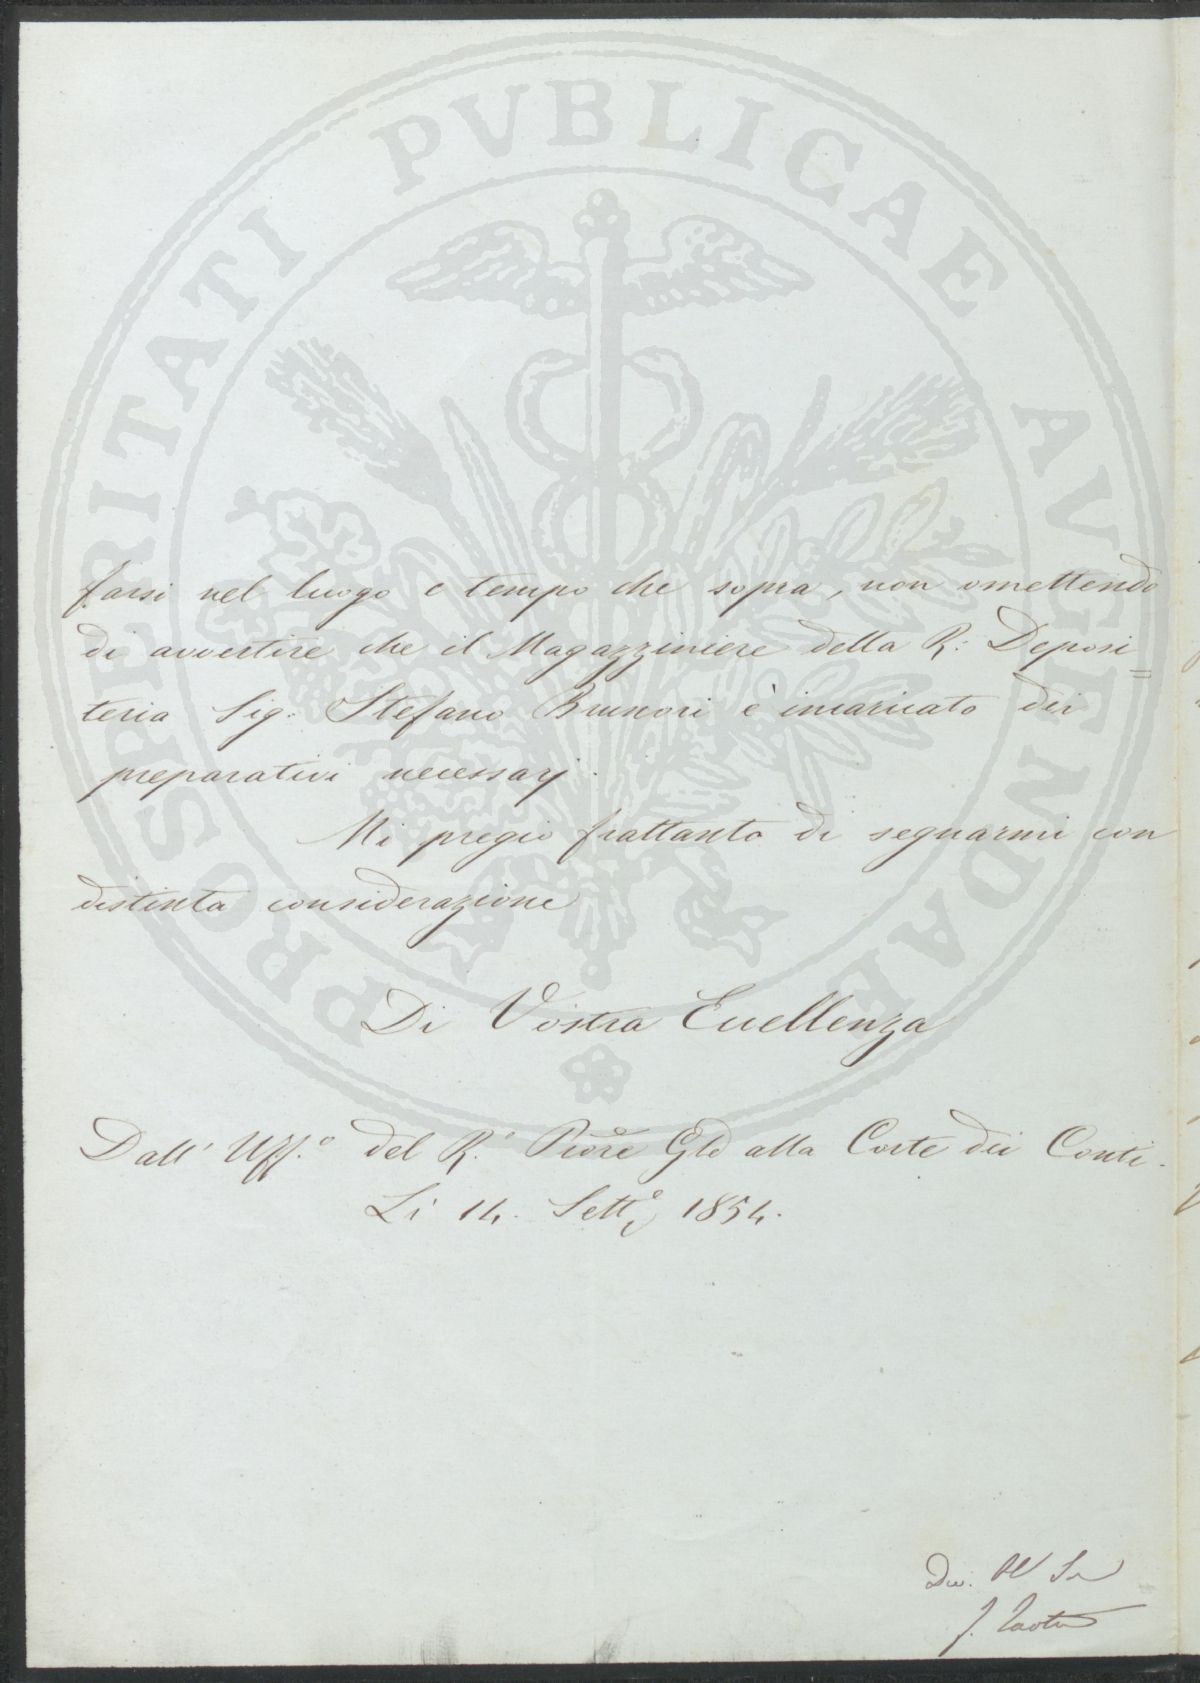 PROSPERITATI PVBLICAE AVGENDAE
farsi nel luogo e tempo che sopra, non omettendo
di avvertire che il Magazziniere della R: Deposi=
teria Sig: Stefano Brunori è incaricato dei
preparativi necessarj.
Mi pregio frattanto di segnarmi con
distinta considerazione
Di Vostra Eccellenza
Dall' Uff.o del R.o Proc.e Gle alla Corte dei Conti.
Li 14. Sett.e 1854.